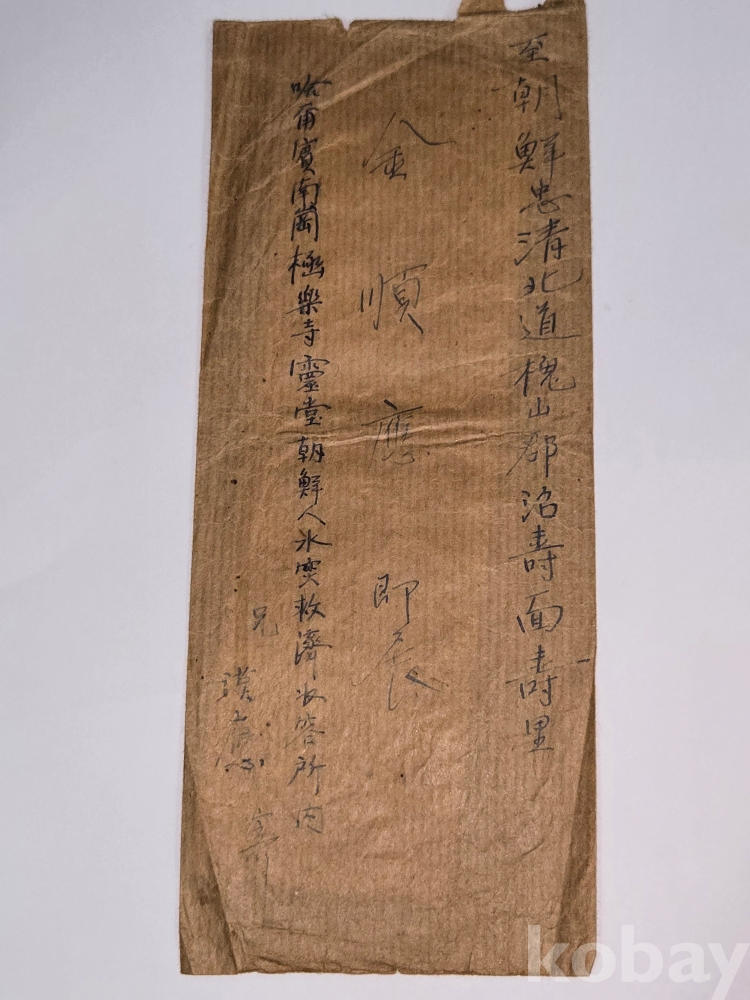 至朝鮮忠清北道槐山郡沼壽面壽里
金順應 即展
哈爾賓南崗極樂寺靈堂朝鮮人水災救濟收容所內
兄 漢應 寄
kobay